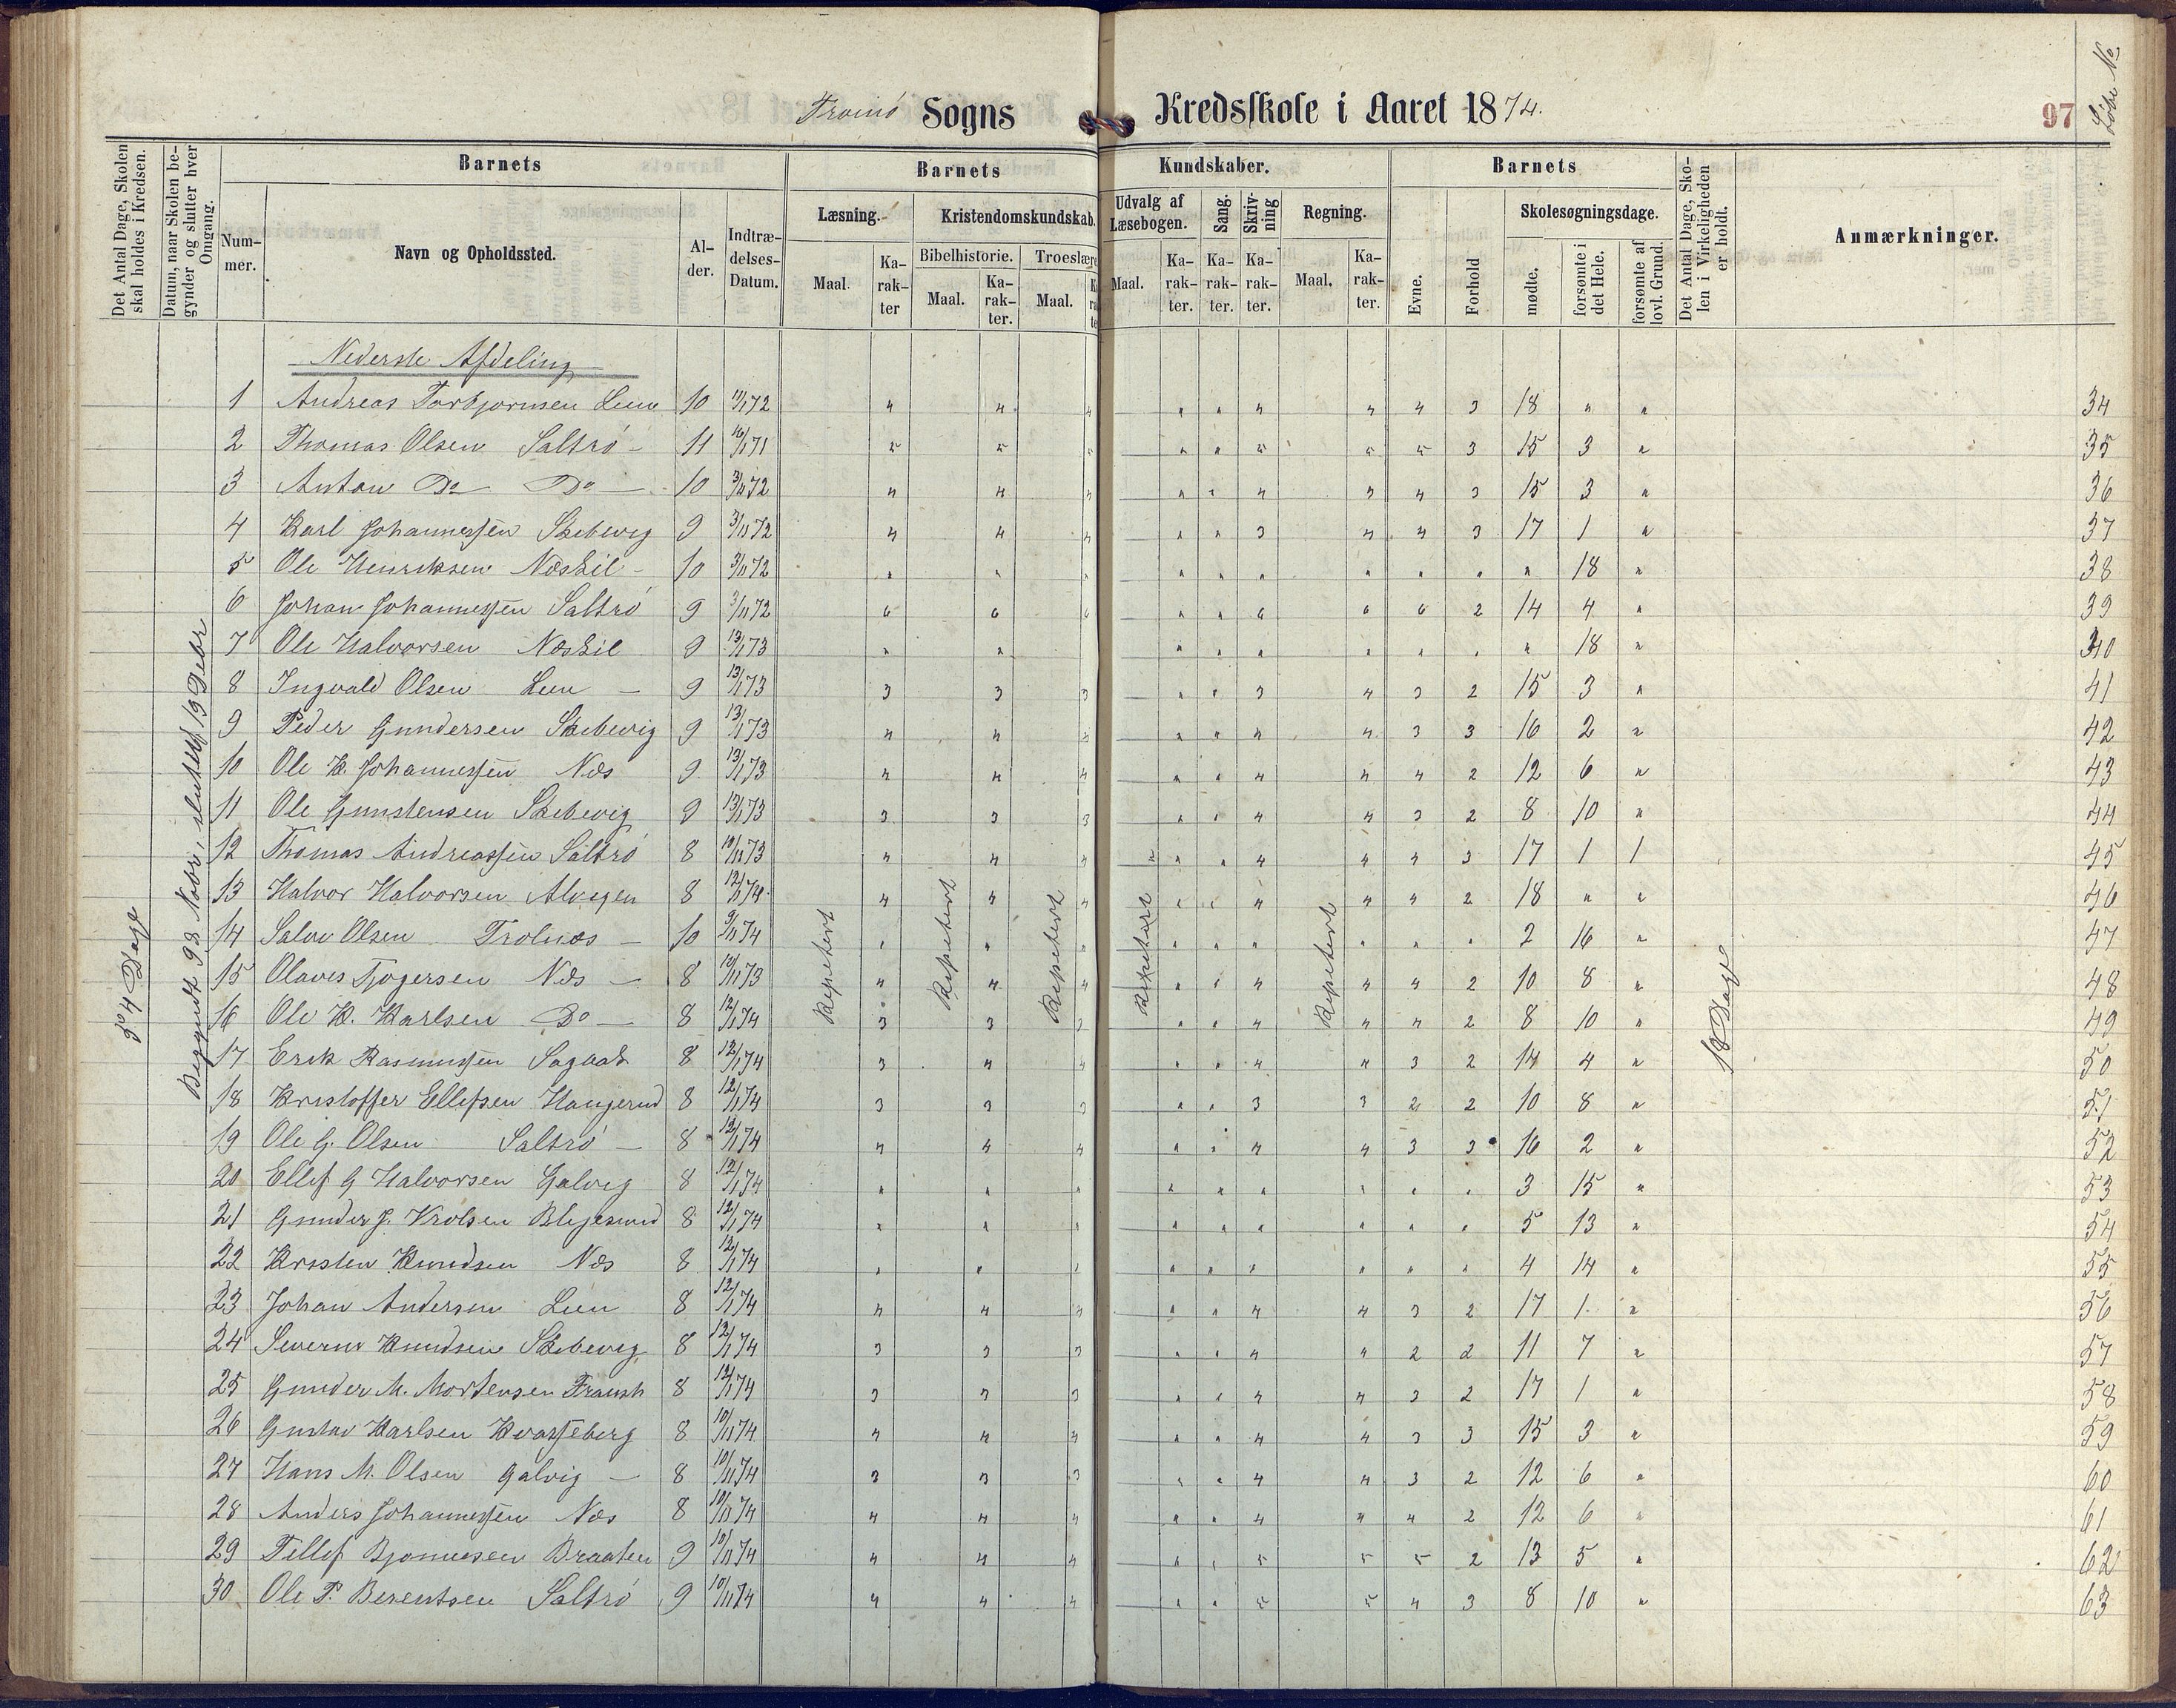 Tromö Sogns Kredsskole i Aaret 1874. 97 Löbe No
Det Antal Dage, Skolen skal holdes i Kredsen.
Datum, naar Skolen begynder og slutter hver Omgang.
Barnets Barnets Kundskaber. Barnets
Nummer. Navn og Opholdssted. Alder. Indtrædelses-Datum.
Læsning. Kristendomskundskab. Udvalg af Læsebogen. Sang. Skrivning Regning. Skolesøgningsdage.
Bibelhistorie. Troeslære
Maal. Karakter Maal. Karakter. Maal. Maal. Karakter. Karakter. Karakter. Maal. Karakter. Evne. Forhold mødte. forsømte i det Hele. forsømte af lovl. Grund.
Det Antal Dage, Skolen i Virkeligheden er holdt.
Anmærkninger.
Nederste Afdeling
1 Andreas Torbjornsen Lien 10 72 4 4 4 " " 4 4 4 3 18 " " 34
2 Thomas Olsen Saltrö 11 71 5 5 5 " " 5 5 5 3 15 3 " 35
3 Anton Do Do 10 3/11 72 4 4 4 " " 4 3 4 3 15 3 " 36
4 Karl Johannessen Skibevig 9 3/11 72 4 4 4 " " 3 4 4 3 17 1 " 37
5 Ole Henriksen Næskil 10 3/11 72 " " " " " " " " " 18 " 38
6 Johan Johannessen Saltrö 9 3/11 72 6 6 6 " " 6 6 6 2 14 4 " 39
7 Ole Halvorsen Næskil 9 13/1 73 " " " " " " " " " 18 " 40
8 Ingvald Olsen Lien 9 13/1 73 3 3 3 " " 3 4 3 2 15 3 " 41
9 Peder Gundersen Skibevig 9 13/1 73 4 4 4 " " 4 4 3 3 16 2 " 42
10 Ole K. Johannessen Næs 9 13/1 73 4 4 4 " " 4 4 4 2 12 6 " 43
11 Ole Gunstensen Skibevig 9 13/1 73 3 3 3 " " 4 4 3 2 8 10 " 44
12 Thomas Andreassen Saltrö 8 73 4 4 4 " " " 4 4 4 3 17 1 1 45
13 Halvor Halvorsen Alvegen 8 12/1 74 4 4 4 " " 4 4 4 2 18 " " 46
14 Salve Olsen Trolnæs 10 9/11 74 " " " " " " " " " 2 16 " 47
15 Olaves Tjøgersen Næs 8 73 4 4 4 " " 4 4 4 2 10 8 " 48
16 Ole K. Karlsen Do 8 12/1 74 3 3 3 " " 4 4 4 2 8 10 " 49
17 Erik Rasmussen Sagaat 8 12/1 74 3 4 4 " " 4 4 3 2 14 4 " 50
18 Kristoffer Ellefsen Hangerud 8 12/1 74 3 3 3 " " 3 3 2 2 10 8 " 51
19 Ole G. Olsen Saltrö 8 12/1 74 4 4 4 " " 4 4 3 3 16 2 " 52
20 Ellef G Halvorsen Galvig 8 12/1 74 " " " " " " " " " 3 15 " 53
21 Gunder J. Vrolsen 8 12/1 74 " " " " " " " " " 5 13 " 54
22 Kristen Knudsen Næs 8 12/1 74 " " " " " " " " " 4 14 " 55
23 Johan Andersen Lien 8 12/1 74 4 4 4 " " 4 4 3 2 17 1 " 56
24 Severin Knudsen Skibevig 8 12/1 74 3 3 3 " " 4 4 2 2 11 7 " 57
25 Gunder M. Mortensen 8 12/1 74 3 3 3 " " 4 4 3 2 17 1 " 58
26 Gustav Karlsen Kvasseberg 8 10/11 74 4 4 4 " " 4 4 3 3 15 3 " 59
27 Hans M. Olsen Galvig 8 10/11 74 3 3 3 " " 4 4 3 2 12 6 " 60
28 Anders Johannessen Næs 8 10/11 74 4 4 4 " " 4 4 4 2 12 6 " 61
29 Tellef Bjonnesen Braaten 9 10/11 74 4 4 4 " " 5 5 5 2 13 5 " 62
30 Ole P. Berentsen Saltrö 9 10/11 74 4 4 4 " " 5 5 4 3 8 10 " 63
Dage
Begyndt 9 28 Nobr, sluttet 19 Debr
Repetert
Repetert
Repetert
Repetert
Repetert
18 Dage